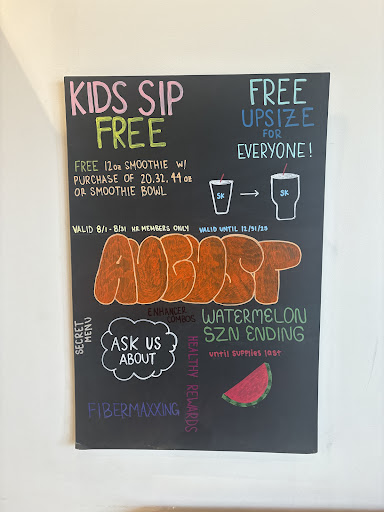 KIDS SIP
FREE
FREE 12oz SMOOTHIE W/
PURCHASE OF 20, 32, 44 oz
OR SMOOTHIE BOWL
FREE
UPSIZE
FOR
EVERYONE!
SK
SK
VALID 8/1 - 8/31 HR MEMBERS ONLY
VALID UNTIL 12/31/25
AUGUST
SECRET
MENU
ENHANCER
COMBOS
ASK US
ABOUT
HEALTHY REWARDS
FIBERMAXXING
WATERMELON
SZN ENDING
until supplies last